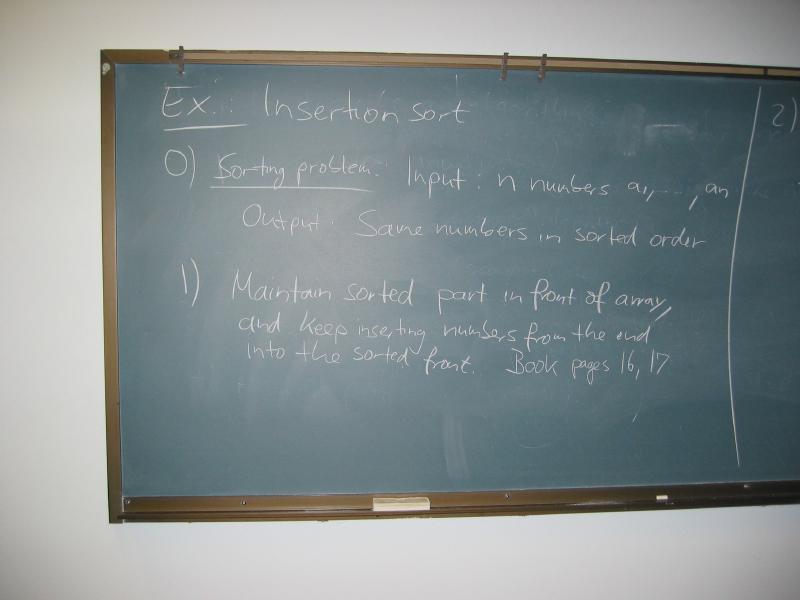 Ex.: Insertion sort
0) Sorting problem: Input: n numbers a1, ..., an
Output: Same numbers in sorted order
1) Maintain sorted part in front of array,
and keep inserting numbers from the end
into the sorted front. Book pages 16, 17
2)